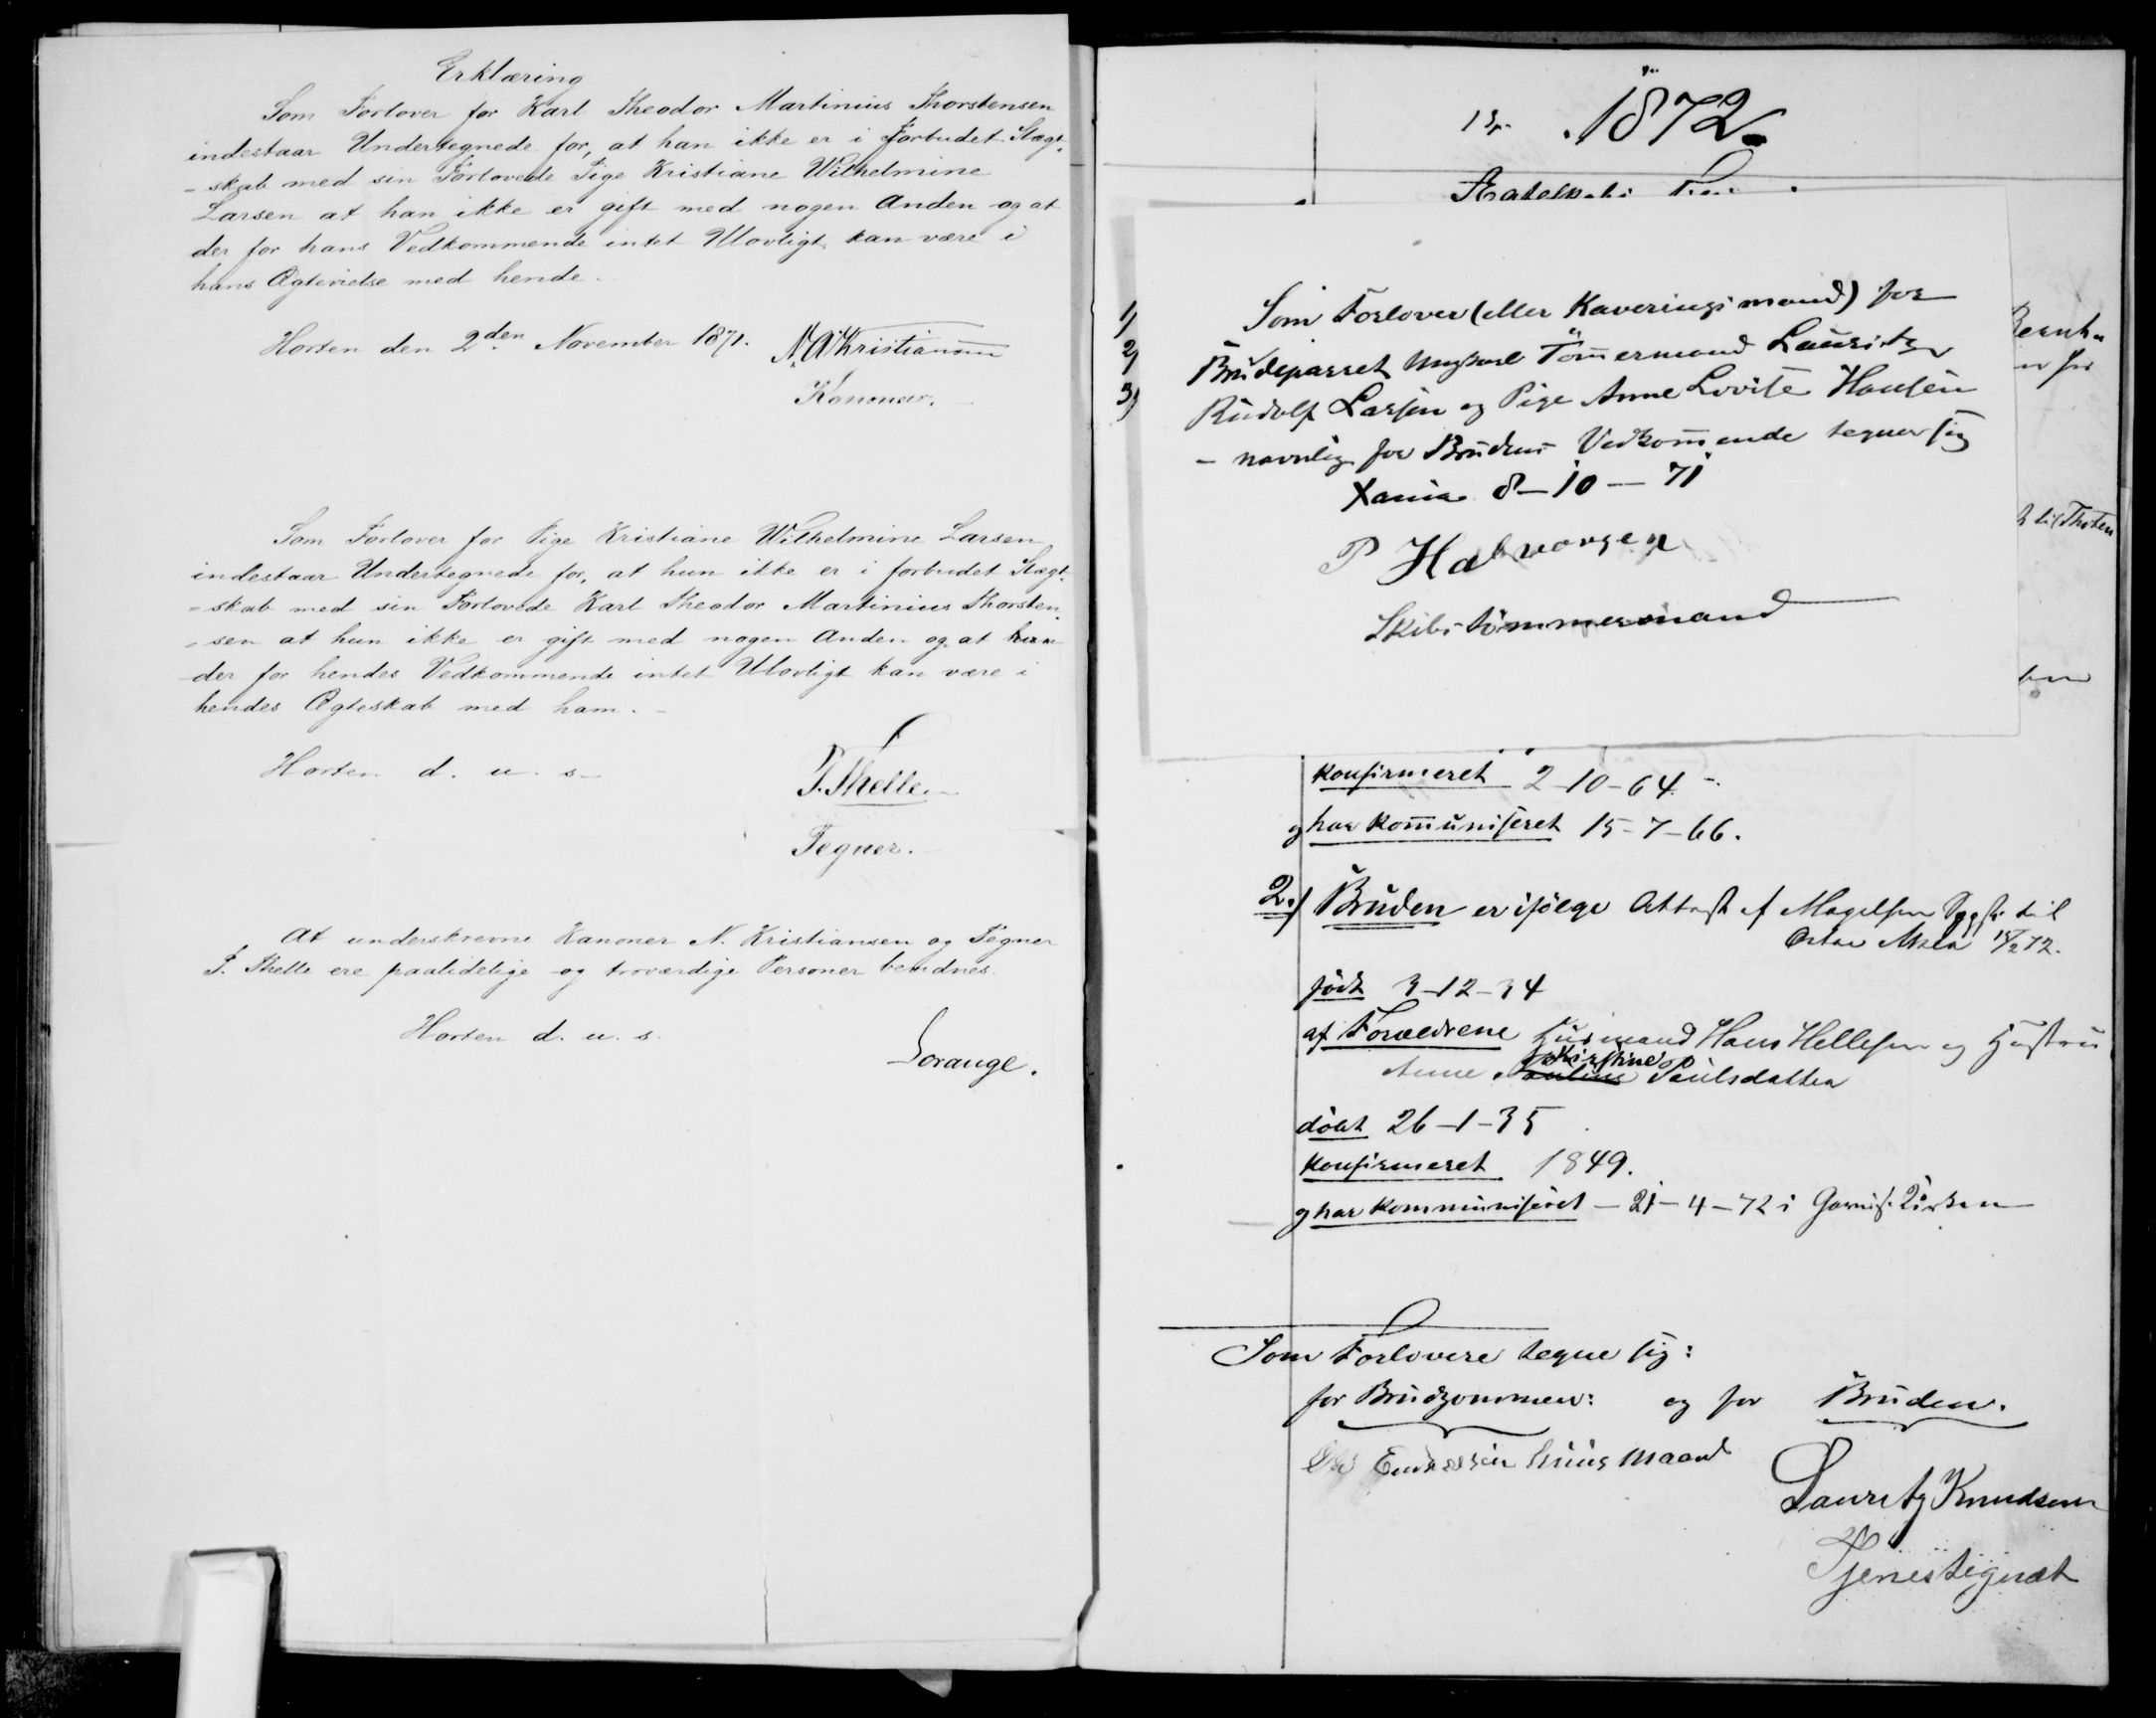 Erklæring
Som Forlover for Karl Theodor Martinius Thorstensen
indestaar Undertegnede for, at han ikke er i forbudet Slægt-
-skab med sin Forlovede Pige Kristiane Wilhelmine
Larsen at han ikke er gift med nogen Anden og at
der for hans Vedkommende intet Ulovligt kan være i
hans Ægtevielse med hende.
Horten den 2den November 1871.
N. Kristiansen
Kanoner.
Som Forlover for Pige Kristiane Wilhelmine Larsen
indestaar Undertegnede for, at hun ikke er i forbudet Slægt-
-skab med sin Forlovede Karl Theodor Martinius Thorsten-
-sen at hun ikke er gift med nogen Anden og at
der for hendes Vedkommende intet Ulovligt kan være i
hendes Ægteskab med ham.
Horten d. u. s.
T. Thelle.
Tegner.
At underskrevne Kanoner N. Kristiansen og Tegner
T. Thelle ere paalidelige og troværdige Personer bevidnes.
Horten d. u. s.
Lorange.
1872.
1)
2)
3)
Som Forlover (eller Kaveringsmand) for
Brudeparret Ungkarl Tömmermand Lauritz
Rudolf Larsen og Pige Anne Lovise Hansen
- navnlig for Brudens Vedkommende tegner sig
Xania 8-10-71
P Halvorsen
Skibstömmermand
til Thoten
konfirmeret 2-10-64.
og har kommuniseret 15-7-66.
2.) Bruden er ifölge Attest af Magelsen Sgpr. til
Østre Aker 15/2 72.
født 3-12-34
af Forældrene Husmand Hans Hellesen og Hustru
Anne Kirstine Paulsdatter
döbt 26-1-35
konfirmeret 1849.
og har kommuniseret - 21-4-72 i Garnis. Kirken
Som Forlovere tegne sig:
for Brudgommen: og for Bruden.
Huusmand
Lauritz Knudsen
Tjenestegut